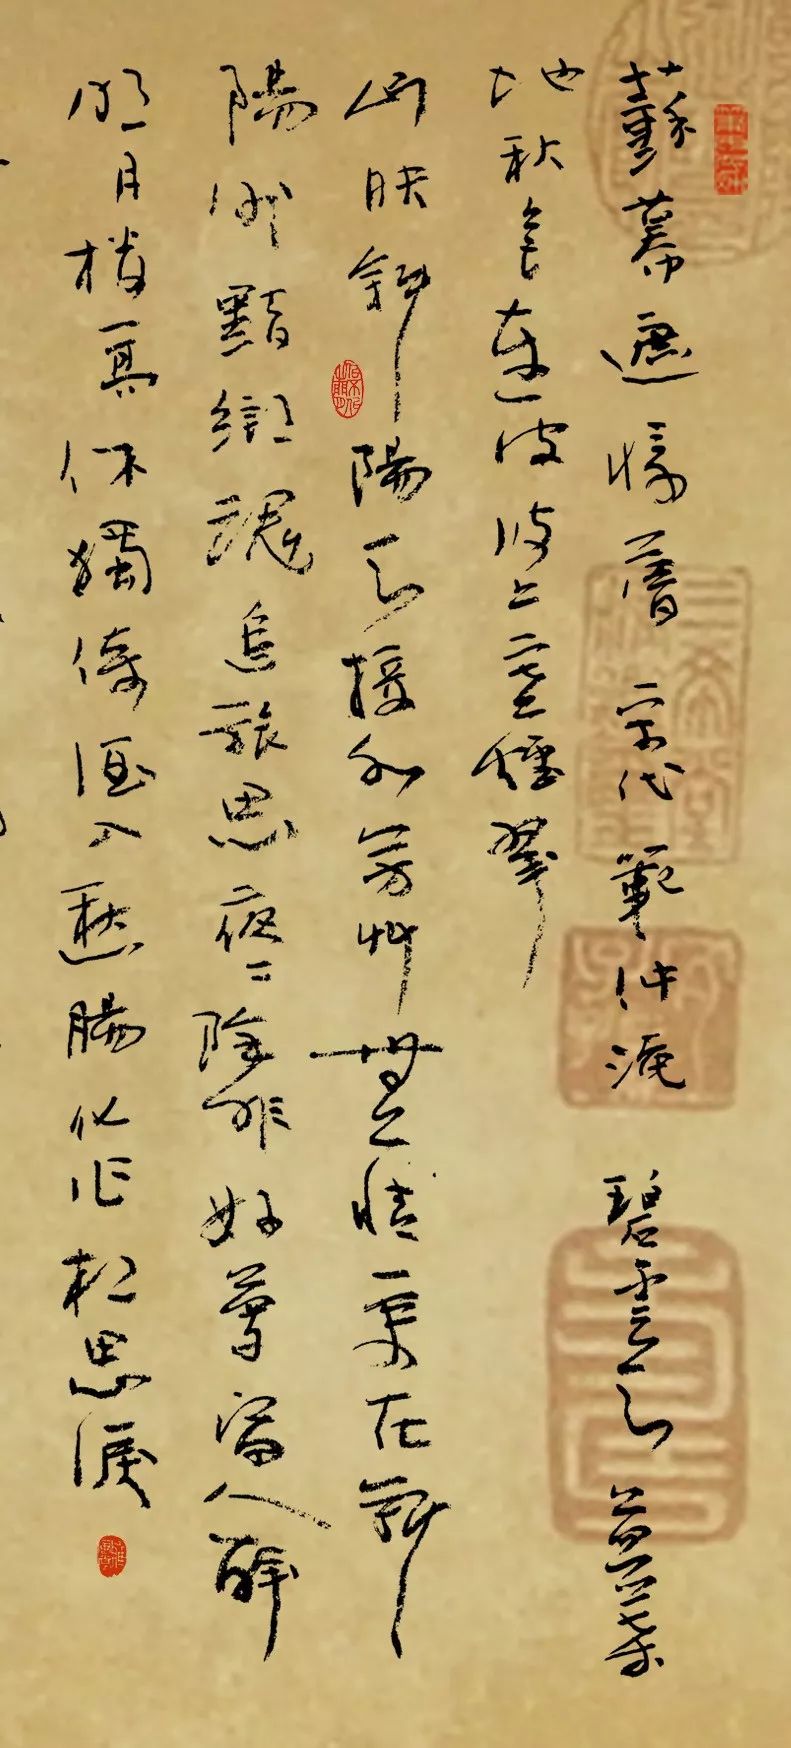 蘇幕遮 懷舊 宋代 範仲淹 碧雲天 黃葉
地秋色連波波上寒煙翠
山映斜陽天接水芳草無情更在斜
陽外黯鄉魂追旅思夜〻除非好夢留人醉
明月樓高休獨倚酒入愁腸化作相思淚